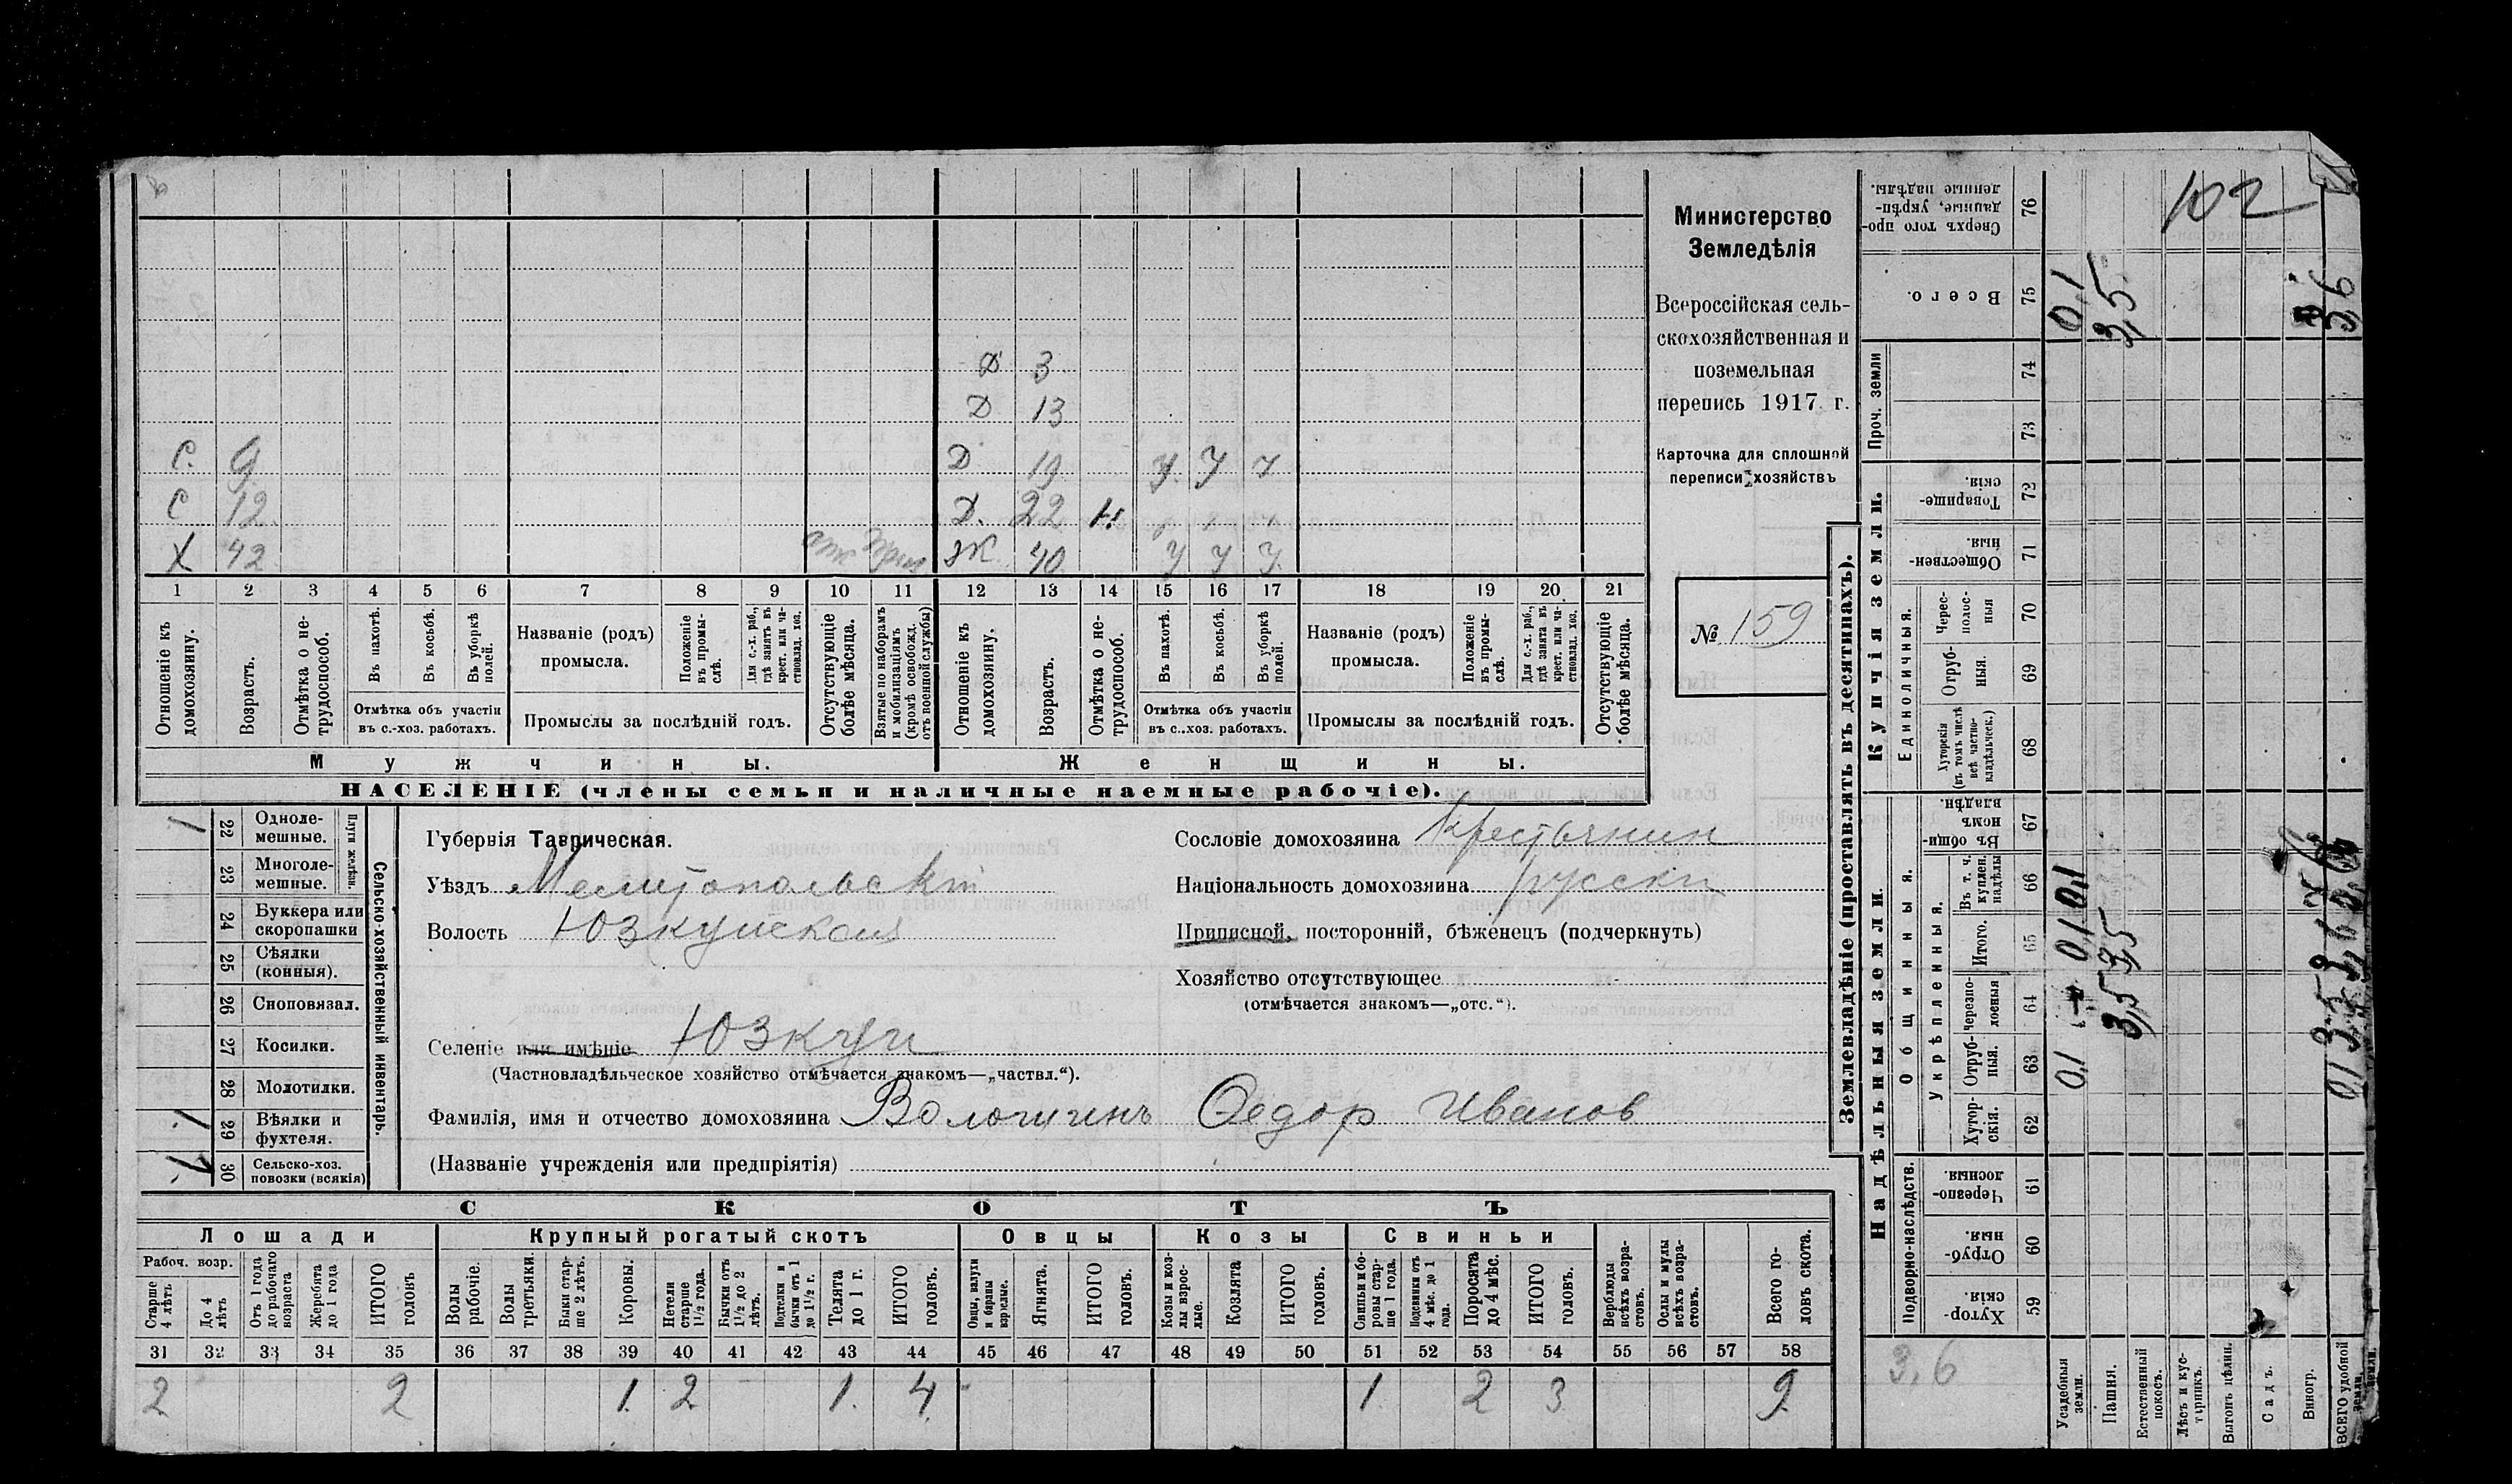 102
Министерство
Земледѣлія
Всероссійская сель-
скохозяйственная и
поземельная
перепись 1917 г.
Карточка для сплошной
переписи хозяйствъ
№ 159
Д 3
Д 13
С. 9 Д 19 У У У
С 12 Д. 22
Х 42 Ж 40 У У У
1 2 3 4 5 6 7 8 9 10 11 12 13 14 15 16 17 18 19 20 21
Отношеніе къ домохозяину.
Возрастъ.
Отмѣтка о не-трудоспособ.
Въ пахотѣ.
Въ косьбѣ.
Въ уборкѣ полей.
Отмѣтка объ участіи
въ с.-хоз. работахъ.
Названіе (родъ)
промысла.
Положеніе въ промы-слѣ.
Для с.-х. раб., гдѣ занятъ въ крест. или ча-стновлад. хоз.
Промыслы за послѣдній годъ.
Отсутствующіе болѣе мѣсяца.
Взятые по наборамъ и мобилизаціямъ (кромѣ освобожд. отъ военной службы)
Отношеніе къ домохозяину.
Возрастъ.
Отмѣтка о не-трудоспособ.
Въ пахотѣ.
Въ косьбѣ.
Въ уборкѣ полей.
Отмѣтка объ участіи
въ с..хоз. работахъ.
Названіе (родъ)
промысла.
Положеніе въ промы-слѣ.
Для с.-х. раб., гдѣ занята въ крест. или ча-стновлад. хоз.
Промыслы за послѣдній годъ.
Отсутствующіе болѣе мѣсяца.
Мужчины.
Женщины.
НАСЕЛЕНІЕ (члены семьи и наличные наемные рабочіе).
1 22 Одноле-мешные.
23 Многоле-мешные.
Плуги желѣзн.
24 Буккера или скоропашки
25 Сѣялки (конныя).
26 Сноповязал.
27 Косилки.
28 Молотилки.
1 29 Вѣялки и фухтеля.
1 30 Сельско-хоз. повозки (всякія)
Сельско-хозяйственный инвентарь.
Губернія Таврическая.
Уѣздъ Мелитопольскій
Волость Юзкуйская
Сословіе домохозяина Крестьянин
Національность домохозяина русскій
Приписной, посторонній, бѣженецъ (подчеркнуть)
Хозяйство отсутствующее
(отмѣчается знакомъ—„отс.“).
Селеніе или имѣніе Юзкуи
(Частновладѣльческое хозяйство отмѣчается знакомъ—„частвл.“).
Фамилія, имя и отчество домохозяина Федор Иванов
(Названіе учрежденія или предпріятія)
СКОТЪ
Лошади
Крупный рогатый скотъ
Овцы
Козы
Свиньи
Рабоч. возр.
Старше 4 лѣтъ
До 4 лѣтъ
Отъ 1 года до рабочаго возраста
Жеребята до 1 года
ИТОГО головъ
Волы рабочіе.
Волы третьяки.
Быки стар-ше 2 лѣтъ.
Коровы.
Нетели старше 1½ года.
Бычки отъ 1½ до 2 лѣтъ.
Подтелки и бычки отъ 1 до 1½ г.
Телята до 1 г.
ИТОГО головъ.
Овцы, валухи и бараны взрослые.
Ягнята.
ИТОГО головъ.
Козы и коз-лы взрос-лые.
Козлята
ИТОГО головъ.
Свиньи и бо-ровы стар-ше 1 года.
Подсвинки отъ 4 мѣс. до 1 года.
Поросята до 4 мѣс.
ИТОГО головъ.
Верблюды всѣхъ возра-стовъ.
Ослы и мулы всѣхъ возра-стовъ.
Всего го-ловъ скота.
31 32 33 34 35 36 37 38 39 40 41 42 43 44 45 46 47 48 49 50 51 52 53 54 55 56 57 58
2 2 1. 2 1. 4 1. 2 3 9
Землевладѣніе (проставлять въ десятинахъ).
Надѣльныя земли.
Купчія земли.
Проч. земли
Подворно-наслѣдств.
Общинныя.
Укрѣпленныя.
Единоличныя.
Хутор-скія. 59
Отруб-ныя. 60
Черезпо-лосныя. 61
Хутор-скія. 62
Отруб-ныя. 63
Черезпо-лосныя 64
Итого. 65
Въ т. ч. куплен. надѣлы 66
Въ общи-номъ владѣн. 67
Хуторскія (въ томъ числѣ всѣ частно-владѣльческ.) 68
Отруб-ныя. 69
Черес-полос-ныя 70
Обществен-ныя. 71
Товарище-скія. 72
73
74
Всего. 75
Сверхъ того про-данные, укрѣп-ленные надѣлы. 76
Усадебныя земли. 0,1 0,1 0,1 0,1
Пашня. 3,5 3,5 3,5
Естественный покосъ.
Лѣсъ и кус-тарникъ.
Выгонъ цѣлин.
Садъ.
Виногр.
ВСЕГО удобной земли. 3,6
3,6